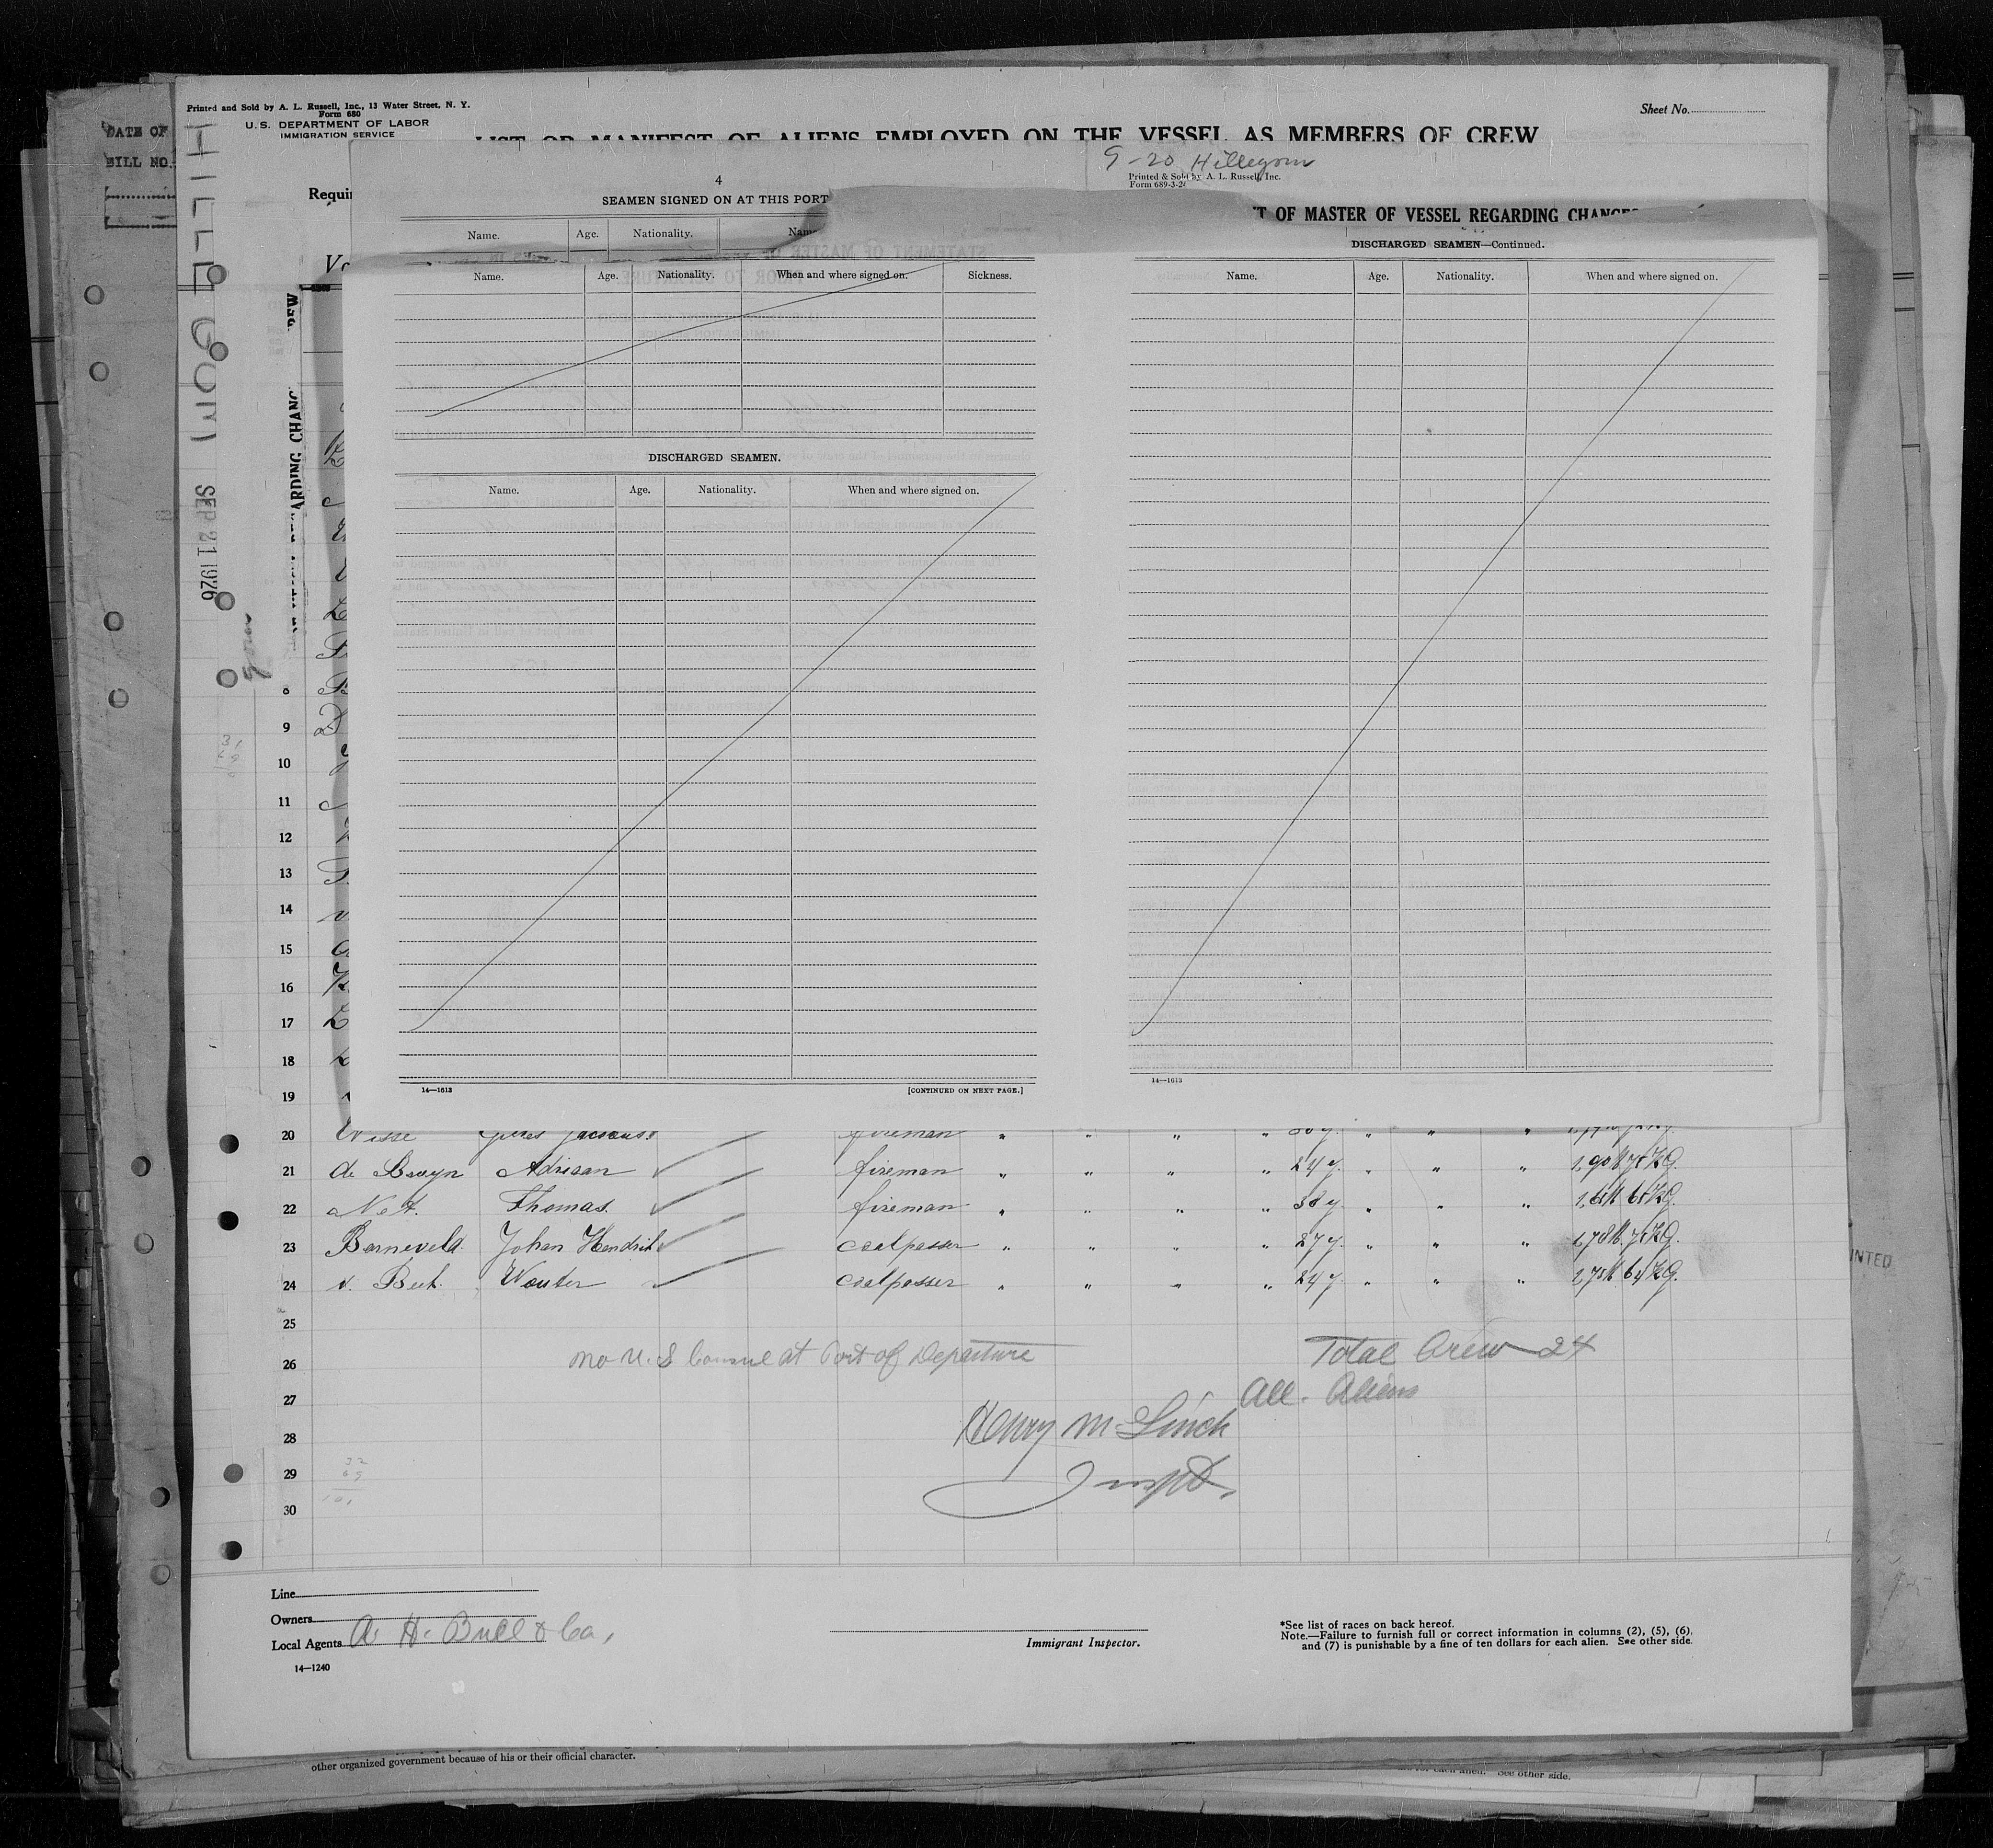 Printed and Sold by A. L. Russell, Inc., 13 Water Street, N. Y.
Form 680
U. S. DEPARTMENT OF LABOR
IMMIGRATION SERVICE
Sheet No.
LIST OR MANIFEST OF ALIENS EMPLOYED ON THE VESSEL AS MEMBERS OF CREW
DATE OF
BILL NO.
HILLEGOM
SEP 21 1926
gom
ARDING CHANG
9-20 Hillegom
Printed & Sold by A. L. Russell, Inc.
Form 689-3-2
4
SEAMEN SIGNED ON AT THIS PORT
Name. Age. Nationality. Nam
T OF MASTER OF VESSEL REGARDING CHANGES
Requir
Name. Age. Nationality. When and where signed on. Sickness.
DISCHARGED SEAMEN.
Name. Age. Nationality. When and where signed on.
14—1613 [CONTINUED ON NEXT PAGE.]
DISCHARGED SEAMEN—Continued.
Name. Age. Nationality. When and where signed on.
14—1613
8
9
10
11
12
13
14
15
16
17
18
19
20 Visse fireman " " " " " " "
21 de Bruyn Adriaan fireman " " " " 24 y. " " "
22 Net. Thomas. fireman " " " " 38 y. " " "
23 Barneveld Johan Hendrik coalpasser " " " " 27 y. " " "
24 v. Wouter coalpasser " " " " 24 y. " " "
25
26 no U. S Consul at Port of Departure Total Crew 24
27 All. Aliens
28 Henry M Linch
29 Inspt.
30
32
69
101
Line
Owners
Local Agents A. H. Bull & Co,
14—1240
Immigrant Inspector.
*See list of races on back hereof.
Note.—Failure to furnish full or correct information in columns (2), (5), (6),
and (7) is punishable by a fine of ten dollars for each alien. See other side.
INTED
other organized government because of his or their official character.
See other side.